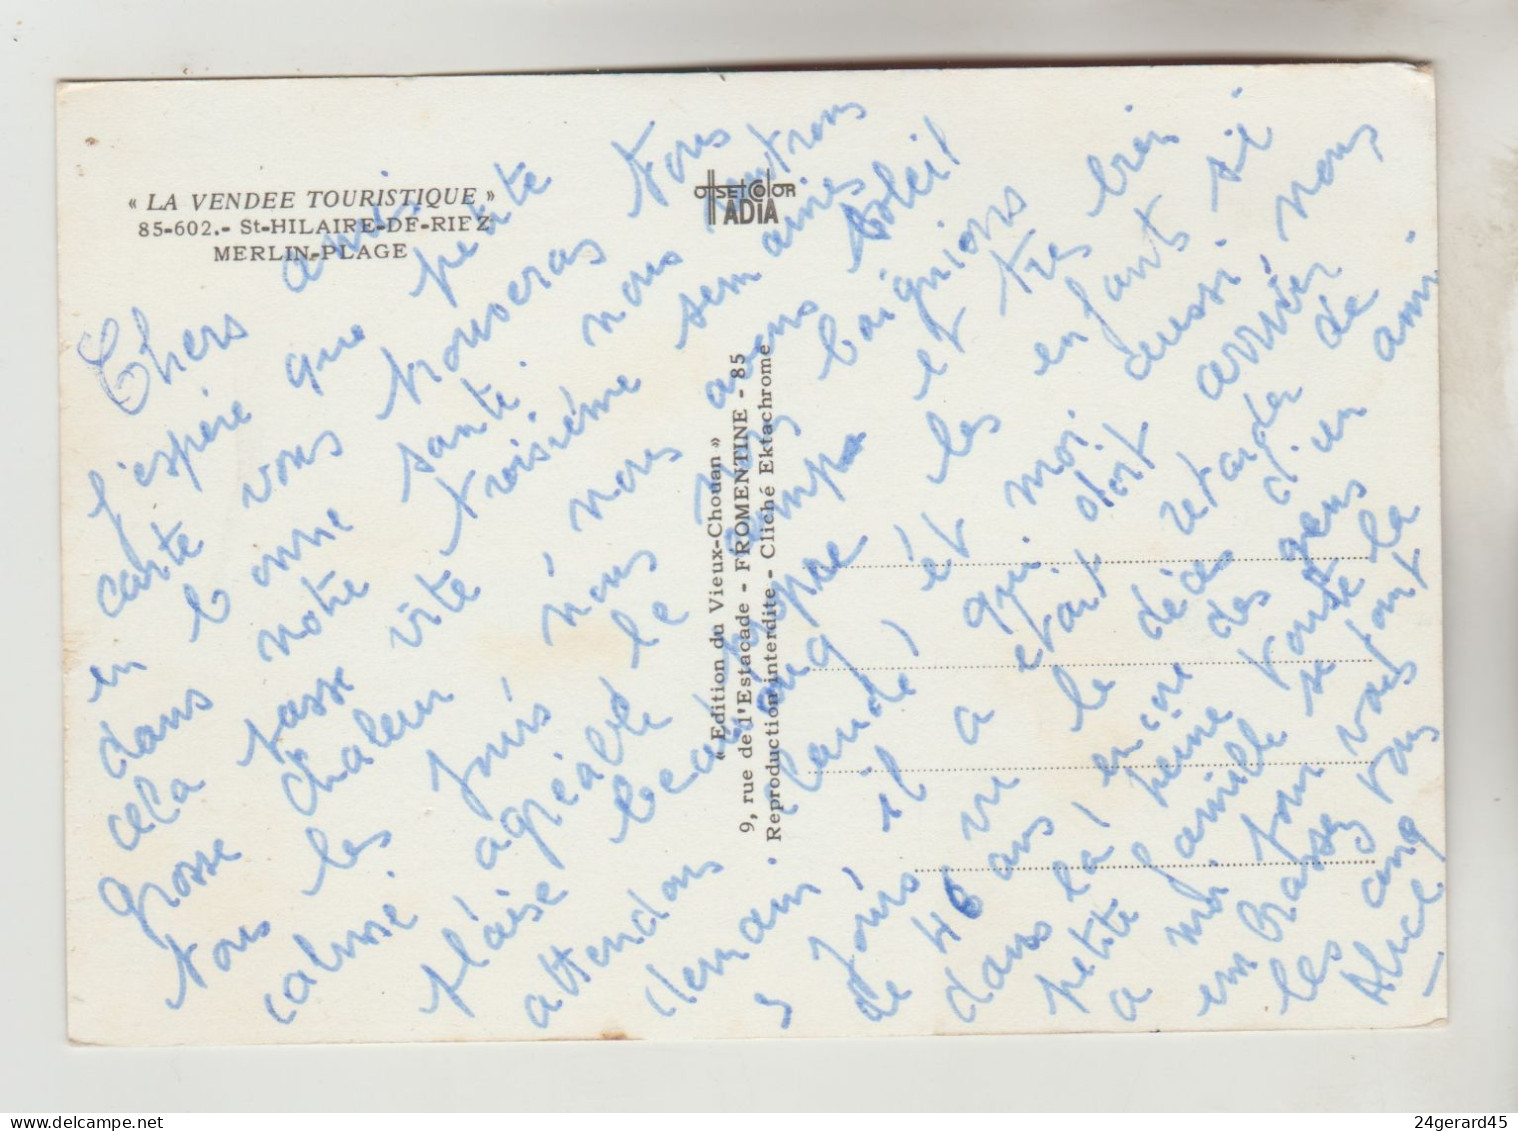 « LA VENDEE TOURISTIQUE »
85-602.- St-HILAIRE-DE-RIEZ
MERLIN-PLAGE
OFFSET COLOR
ADIA
« Edition du Vieux-Chouan »
9, rue de l'Estacade - FROMENTINE - 85
Reproduction interdite - Cliché Ektachrome
Chers amis
J'espère que petite
carte vous trouveras tous
en bonne santé. nous rentrons
dans notre troisième semaines
cela passe vite nous avons soleil
Grosse chaleur nous baignions
tous les jours nous et très bien
calme agréable le temps les enfants si
plaise beaucoup aussi.
attendons Claude et moi arriver nous
demain qui doit
5 jours il était retarder de
de vu le décès d'un ami
46 ans encore des gens
dans la peine toute la
petite famille se joint
a moi pour vous
embrassez vous
les cinq
Alice
24gerard45